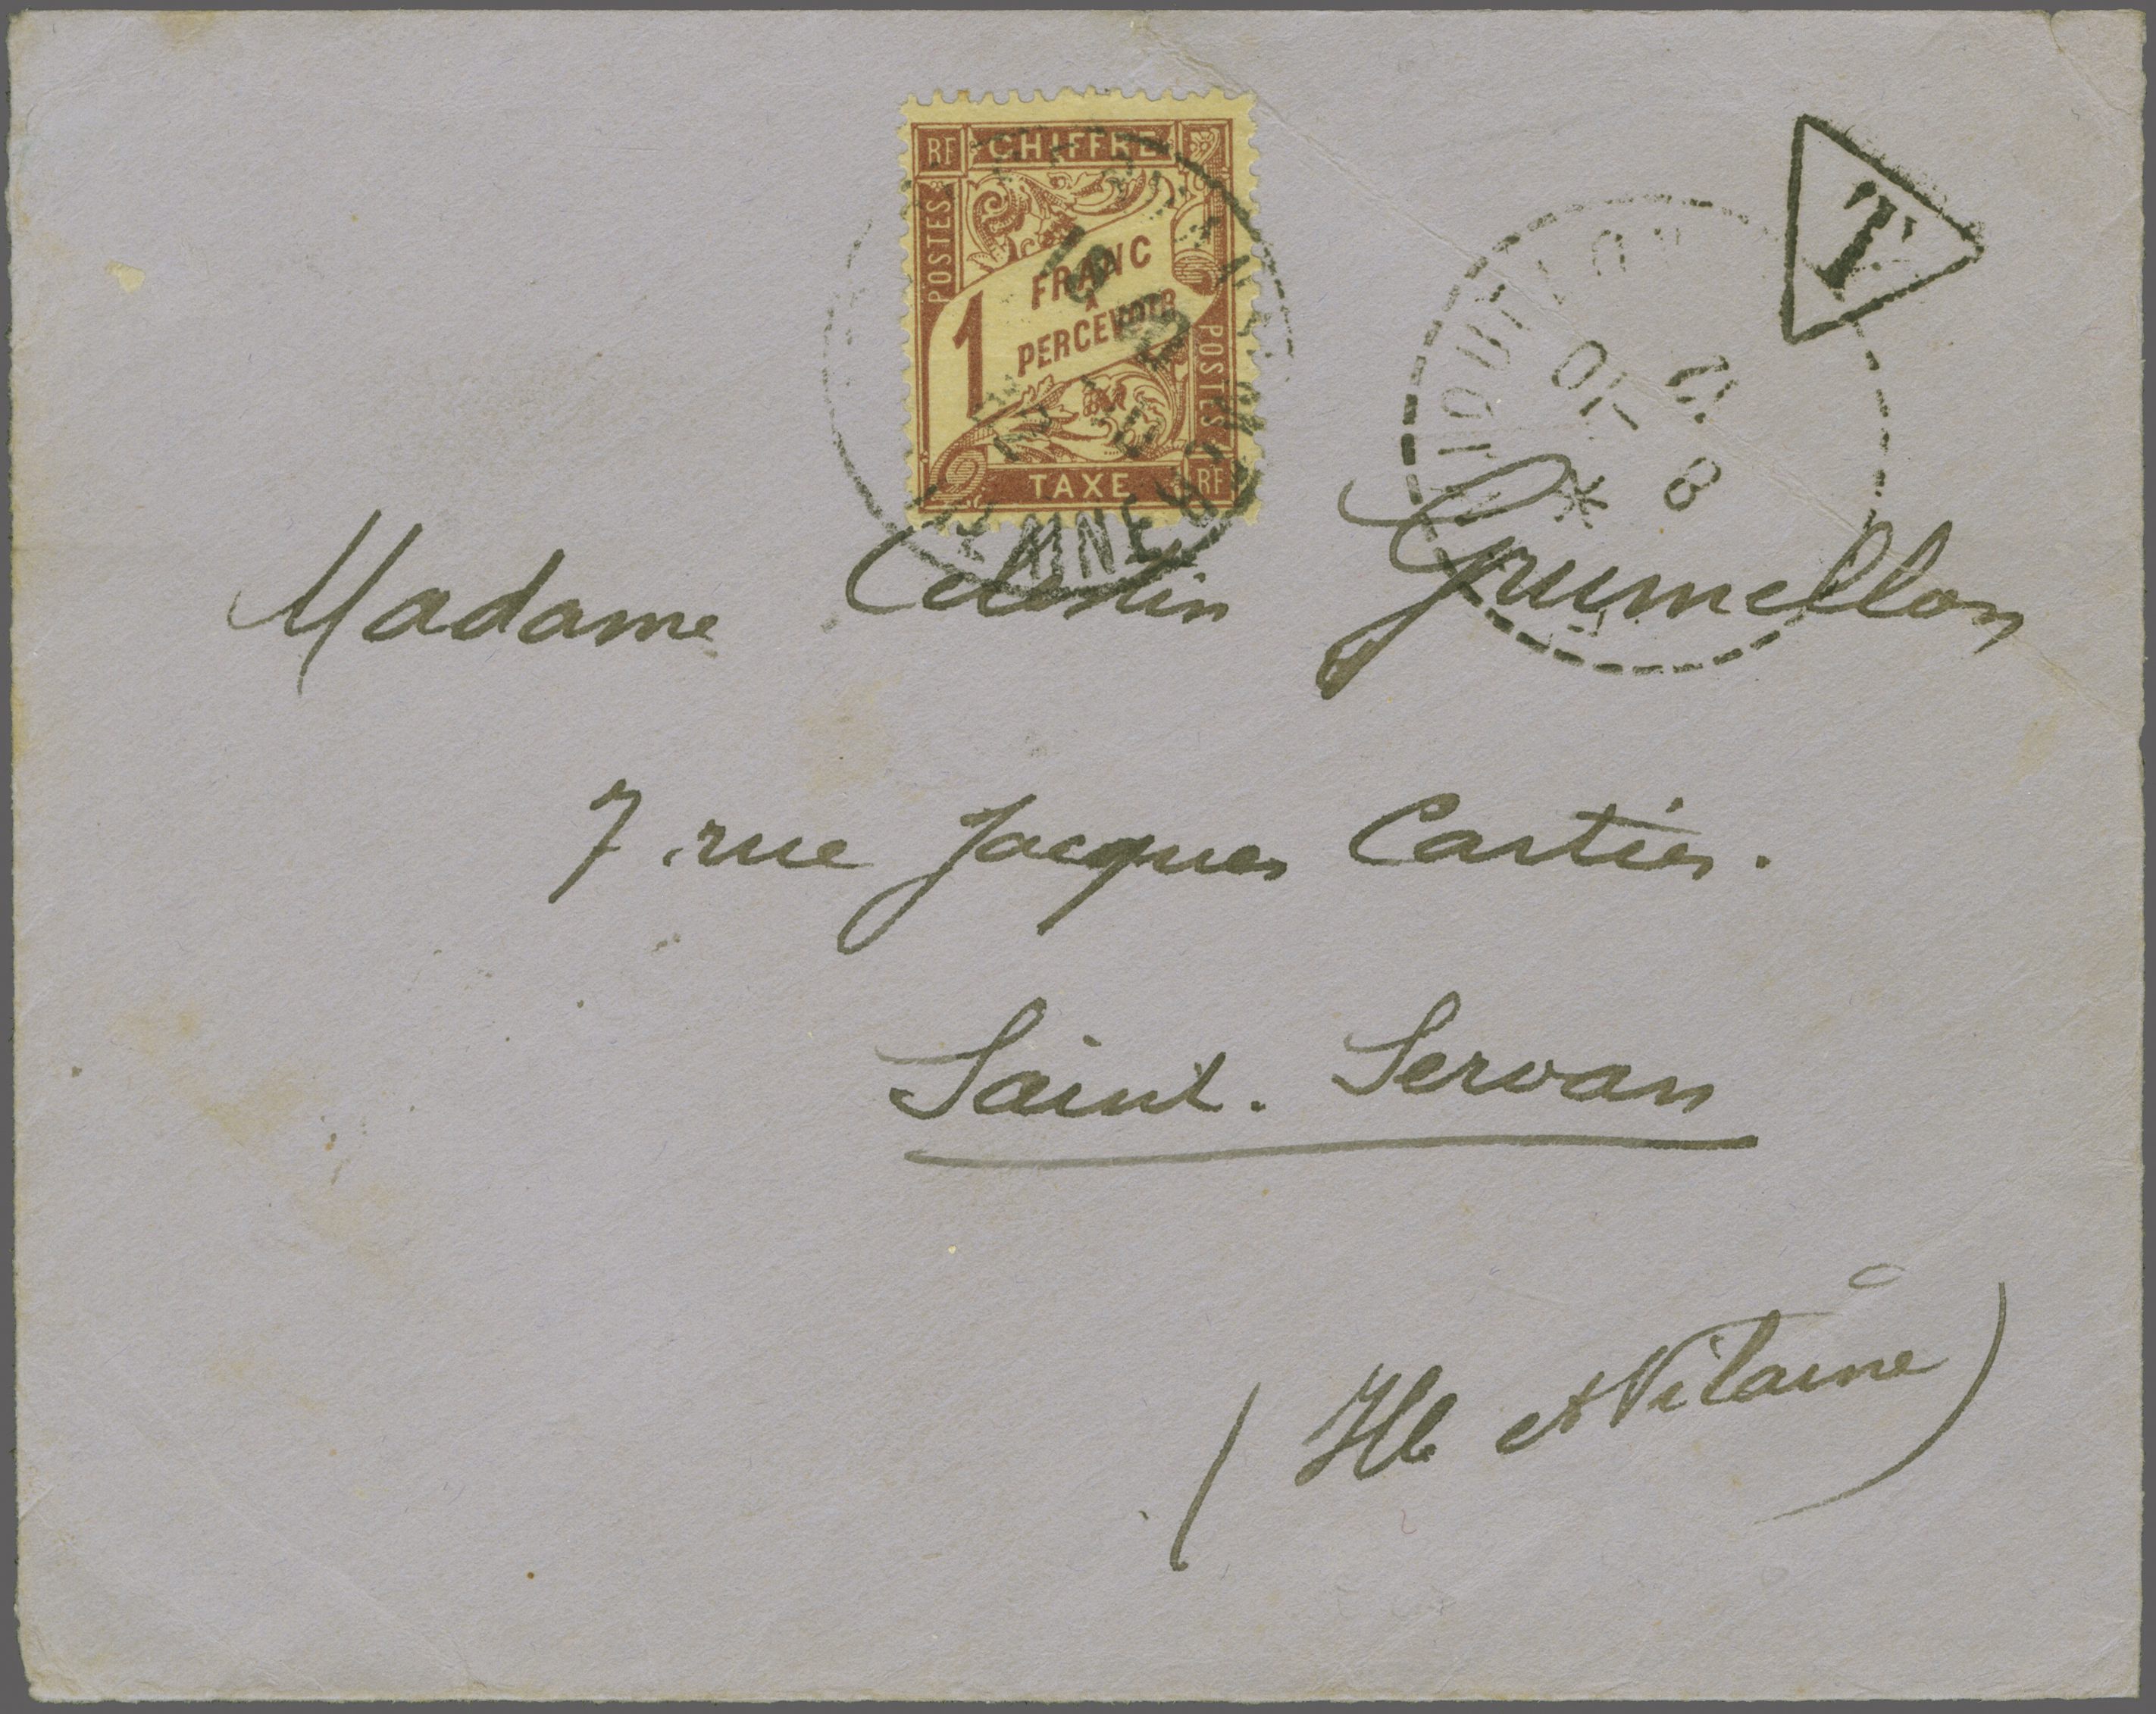 RF CHIFFRE
POSTES
1 FRANC
A
PERCEVOIR
POSTES
TAXE RF
T
Madame Celestin Grumellon
7 rue Jacques Cartier.
Saint. Servan
(Ille et Vilaine)